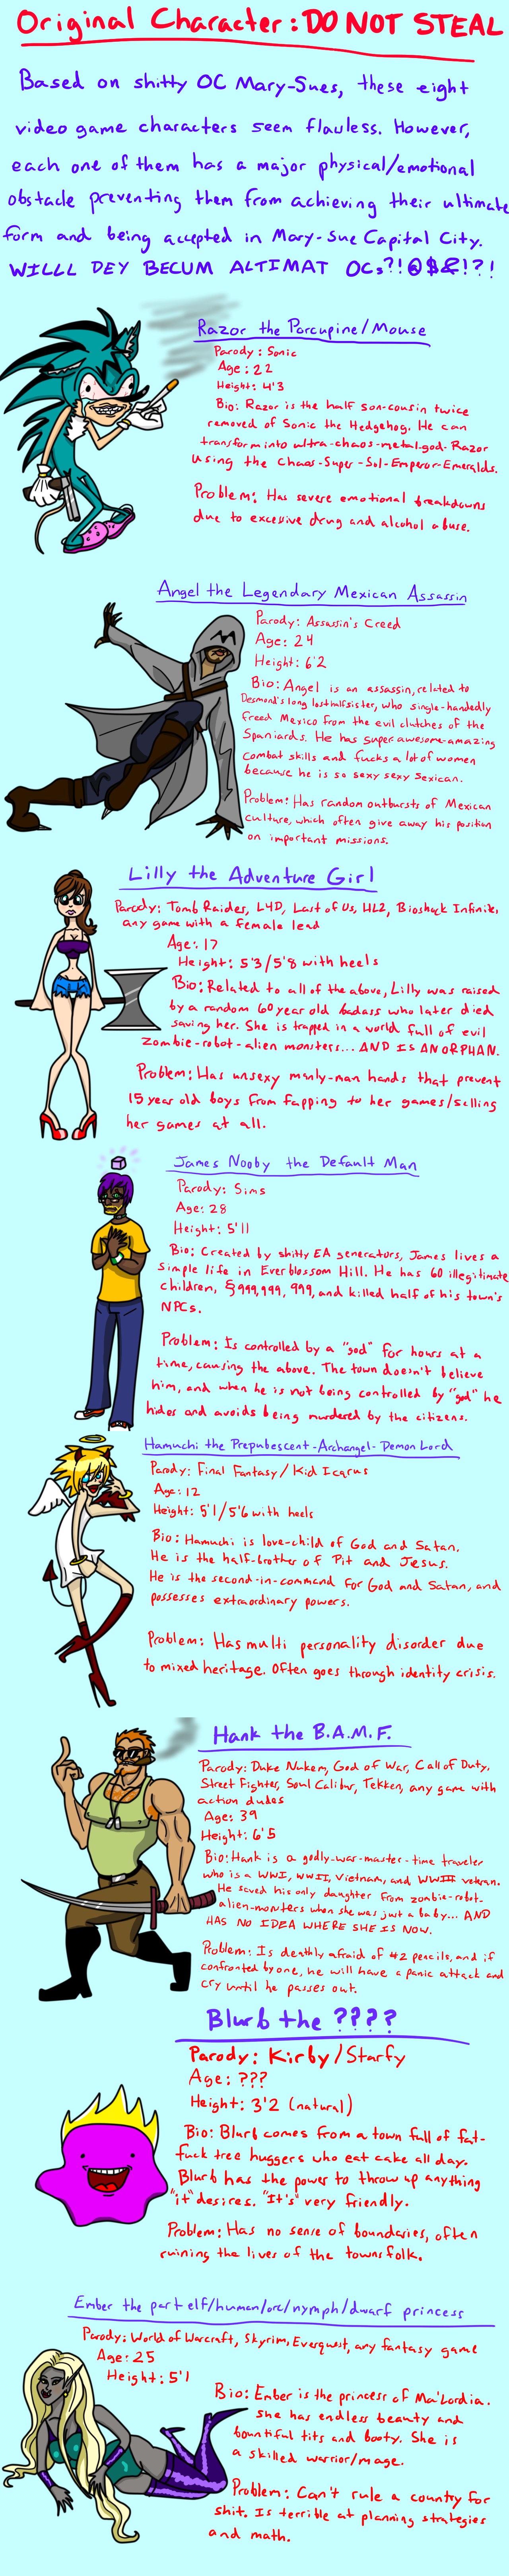 Original Character: DO NOT STEAL
Based on shitty OC Mary-Sues, these eight
video game characters seem flawless. However,
each one of them has a major physical/emotional
obstacle preventing them from achieving their ultimate
form and being accepted in Mary-Sue Capital City.
WILLL DEY BECUM ALTIMAT OCs?!@$&!?!
Razor the Porcupine/Mouse
Parody: Sonic
Age: 22
Height: 4'3
Bio: Razor is the half son-cousin twice
removed of Sonic the Hedgehog. He can
transform into ultra-chaos-metal-god-Razor
using the Chaos-Super-Sol-Emperor-Emeralds.
Problem: Has severe emotional breakdowns
due to excessive drug and alcohol abuse.
Angel the Legendary Mexican Assassin
Parody: Assassin's Creed
Age: 24
Height: 6'2
Bio: Angel is an assassin, related to
Desmond's long lost half sister, who single-handedly
freed Mexico from the evil clutches of the
Spaniards. He has super awesome-amazing
combat skills and fucks a lot of women
because he is so sexy sexy Sexican.
Problem: Has random outbursts of Mexican
culture, which often give away his position
on important missions.
Lilly the Adventure Girl
Parody: Tomb Raider, L4D, Last of Us, HL2, Bioshock Infinite,
any game with a female lead
Age: 17
Height: 5'3/5'8 with heels
Bio: Related to all of the above, Lilly was raised
by a random 60 year old badass who later died
saving her. She is trapped in a world full of evil
zombie-robot-alien monsters... AND IS AN ORPHAN.
Problem: Has unsexy manly-man hands that prevent
15 year old boys from fapping to her games/selling
her games at all.
James Nooby the Default Man
Parody: Sims
Age: 28
Height: 5'11
Bio: Created by shitty EA generators, James lives a
simple life in Everblossom Hill. He has 60 illegitimate
children, §999,999,999, and killed half of his town's
NPCs.
Problem: Is controlled by a "god" for hours at a
time, causing the above. The town doesn't believe
him, and when he is not being controlled by "god" he
hides and avoids being murdered by the citizens.
Hamuchi the Prepubescent-Archangel-Demon Lord
Parody: Final Fantasy/Kid Icarus
Age: 12
Height: 5'1/5'6 with heels
Bio: Hamuchi is love-child of God and Satan.
He is the half-brother of Pit and Jesus.
He is the second-in-command for God and Satan, and
possesses extraordinary powers.
Problem: Has multi personality disorder due
to mixed heritage. Often goes through identity crisis.
Hank the B.A.M.F.
Parody: Duke Nukem, God of War, Call of Duty,
Street Fighter, Soul Calibur, Tekken, any game with
action dudes
Age: 39
Height: 6'5
Bio: Hank is a godly-war-master-time traveler
who is a WWI, WWII, Vietnam, and WWIII vetran.
He saved his only daughter from zombie-robot-
alien-monsters when she was just a baby... AND
HAS NO IDEA WHERE SHE IS NOW.
Problem: Is deathly afraid of #2 pencils, and if
confronted by one, he will have a panic attack and
cry until he passes out.
Blurb the ????
Parody: Kirby/Starfy
Age: ???
Height: 3'2 (natural)
Bio: Blurb comes from a town full of fat-
fuck tree huggers who eat cake all day.
Blurb has the power to throw up anything
"it" desires. "It's" very friendly.
Problem: Has no sense of boundaries, often
ruining the lives of the townsfolk.
Ember the part elf/human/orc/nymph/dwarf princess
Parody: World of Warcraft, Skyrim, Everquest, any fantasy game
Age: 25
Height: 5'1
Bio: Ember is the princess of Ma'Lordia.
she has endless beauty and
bountiful tits and booty. She is
a skilled warrior/mage.
Problem: Can't rule a country for
shit. Is terrible at planning strategies
and math.